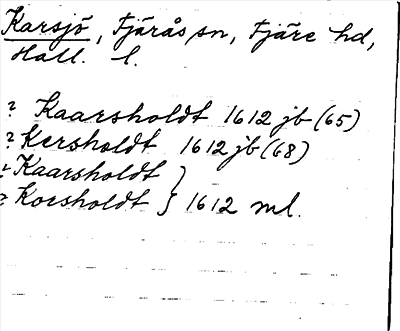 Karsjö, Fjärås sn, Fjäre hd,
Hall. l.
? Kaarsholdt 1612 jb (65)
? Kersholdt 1612 jb (68)
? Kaarsholdt }
? Korsholdt } 1612 ml.